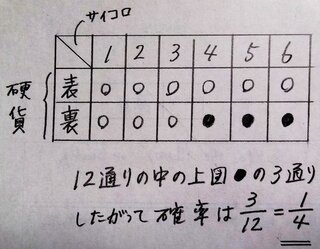 サイコロ
1 2 3 4 5 6
硬貨
表 ○ ○ ○ ○ ○ ○
裏 ○ ○ ○ ● ● ●
12通りの中の上図●の3通り
したがって確率は 3/12 = 1/4